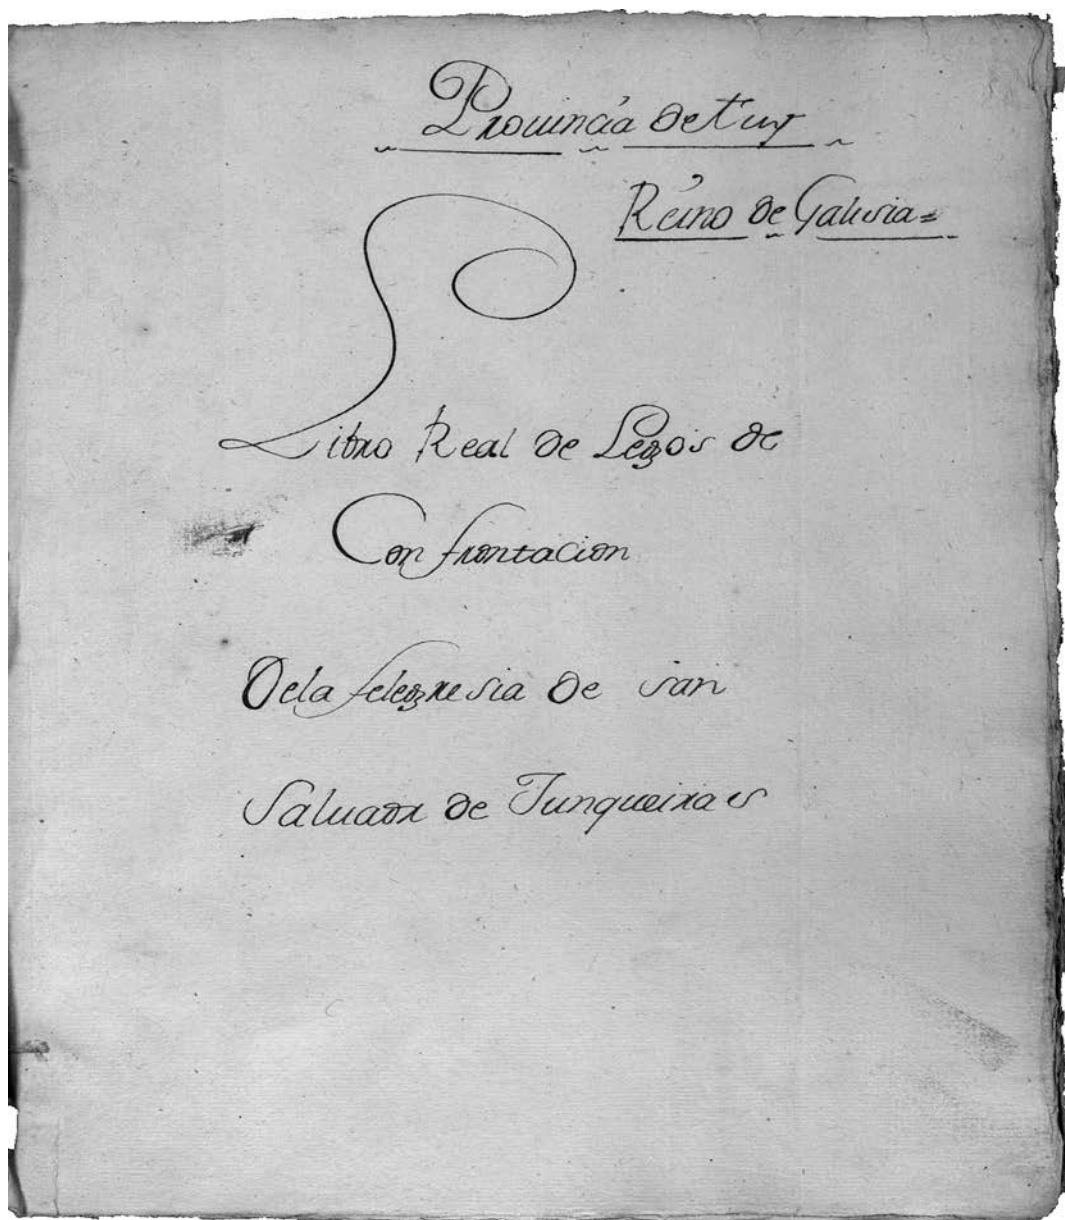 Prouincia de tuy
Reino de Galicia=
Libro Real de Legos de
Con frontacion
Dela felegresia de san
Saluador de Junqueiras